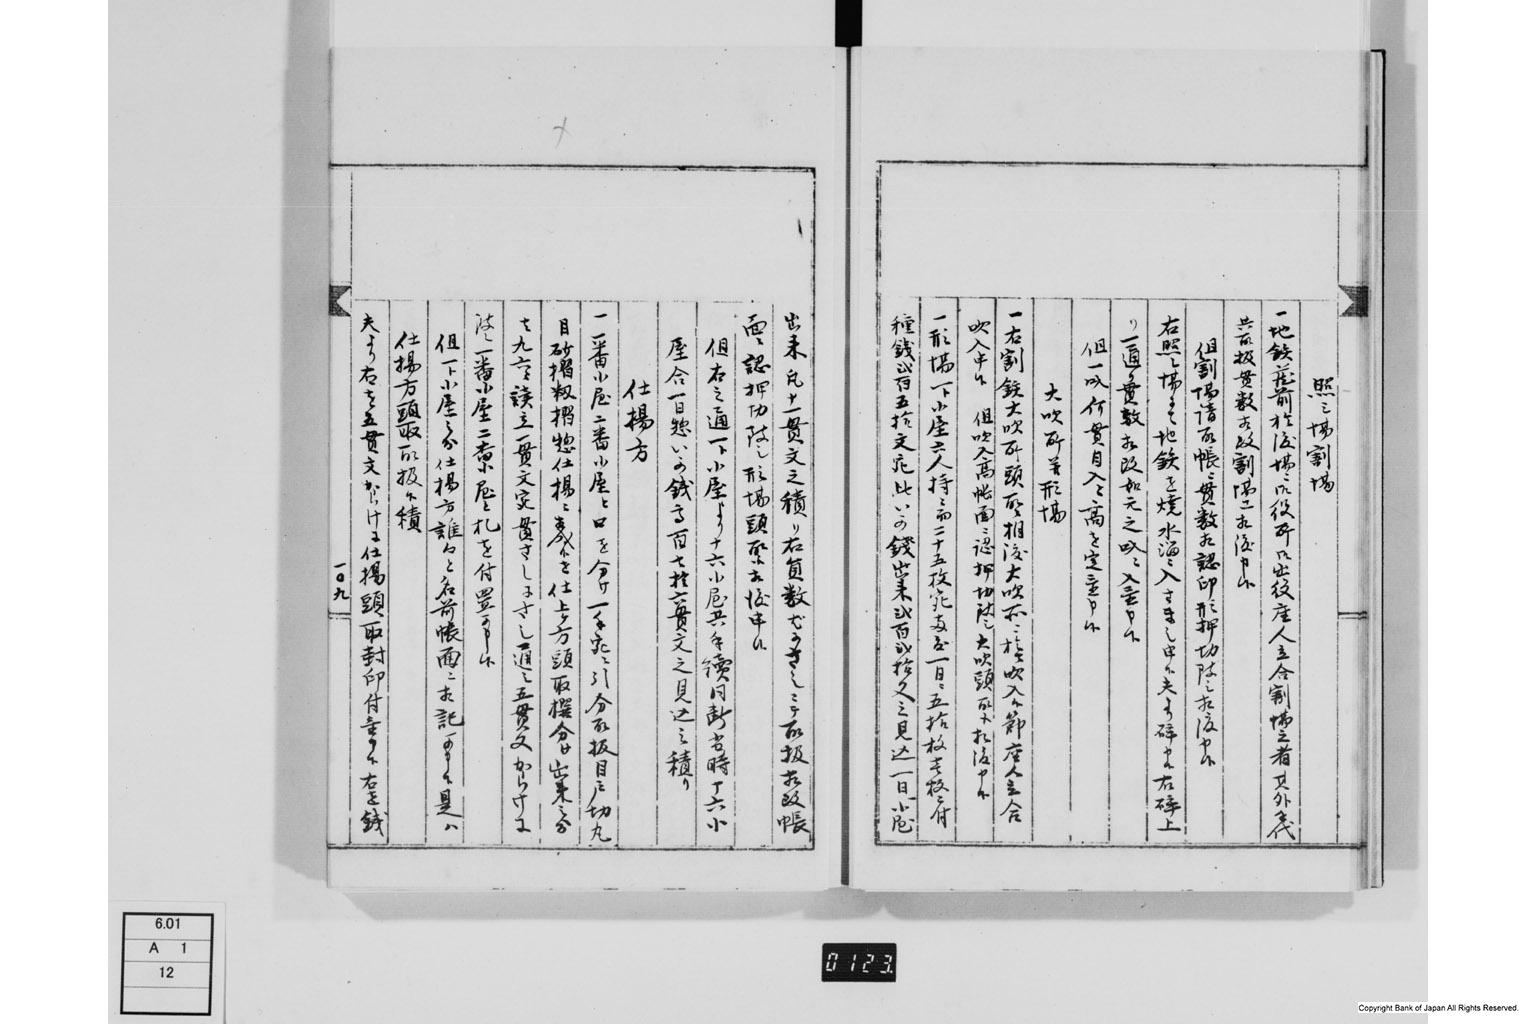 照之場割場
一地鉄蔵前於渡場ニ御役所御出役座人立合割場之者其外手代
共取扱貫数相改割場江相渡申候
但割場請取帳ニ貫数相認印形押切致シ相渡申候
右照之場ニ而地鉄を焼水溜ニ入さまし申候夫より砕申候右砕上
り一通り貫数相改如元之叺ニ入置申候
但一叺何貫目入与高を定置申候
大吹所并形場
一右割鉄大吹所頭取相渡大吹所ニ於吹入候節座人立合
吹入申候 但吹入高帳面ニ認押切致シ大吹頭取江相渡申候
一形場一下小屋六人持ニ而二十五枚宛 一日ニ五拾枚 枚ニ付
種銭弐百五拾文宛此いか銭出来弐百弐拾久之見込一日一小屋
出来凡十一貫文之積り右員数 さしニ而取扱相改帳
面ニ認押切致シ形場頭取江相渡申候
但右之通一下小屋より十六小屋共手続同断当時丁六小
屋合一日惣いか銭高百七拾六貫文之見込之積り
仕揚方
一一番小屋二番小屋与口を分ケ一手宛ニ引分取扱目戸切丸
目砂摺籾摺惣仕揚ニ 仕上ケ方頭取撰分ケ出来之分
者九六ニ読立一貫文宛貫さしにさし通シ五貫文からけに
致シ一番小屋二番小屋与札を付置可申候
但一下小屋之分仕揚方誰々と名前帳面ニ相記可申候是ハ
仕揚方頭取取扱候積
夫より右者五貫文からけに仕揚頭取封印付置申候右者銭
一〇九
6.01
A 1
12
0123
Copyright Bank of Japan All Rights Reserved.